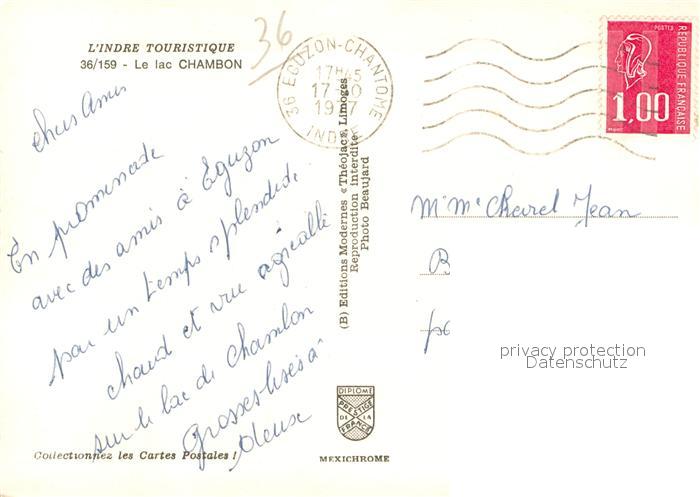 36
L'INDRE TOURISTIQUE
36/159 - Le lac CHAMBON
chers Amis
En promenade
avec des amis à Eguzon
par un temps splendide
chaud et vue agréable
sur le lac de Chambon
Grosses bises à
deux
Collectionnez les Cartes Postales !
36 EGUZON-CHANTOME
17H45
17-10
19 7
INDRE
(B) Editions Modernes «Théojac», Limoges
Reproduction Interdite
Photo Beaujard
DIPLOME
PRESTIGE
DE LA
FRANCE
MEXICHROME
POSTES
REPUBLIQUE FRANÇAISE
1,00
M Me Charel Jean
B
privacy protection
Datenschutz